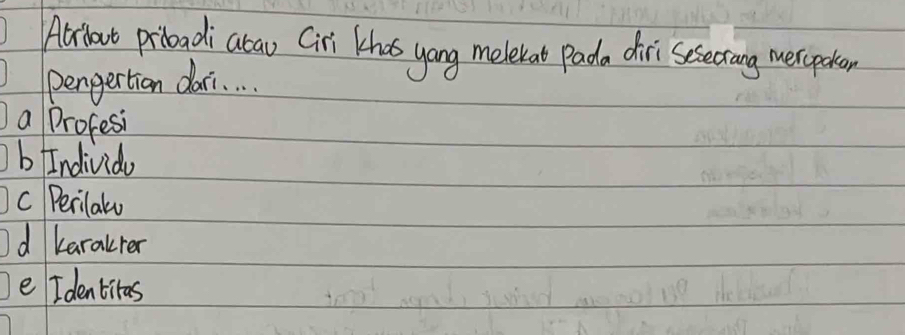 Atribut pribadi atau Ciri khas yang melekat Pada diri Seseorang merupakan
pengertian dari....
a Profesi
b Individu
c Perilaku
d karakter
e Identitas